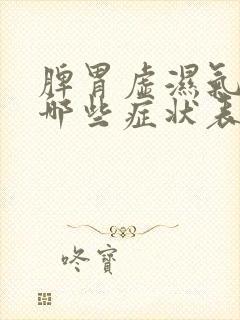 脾胃虛濕氣
哪些症状表
咚寶